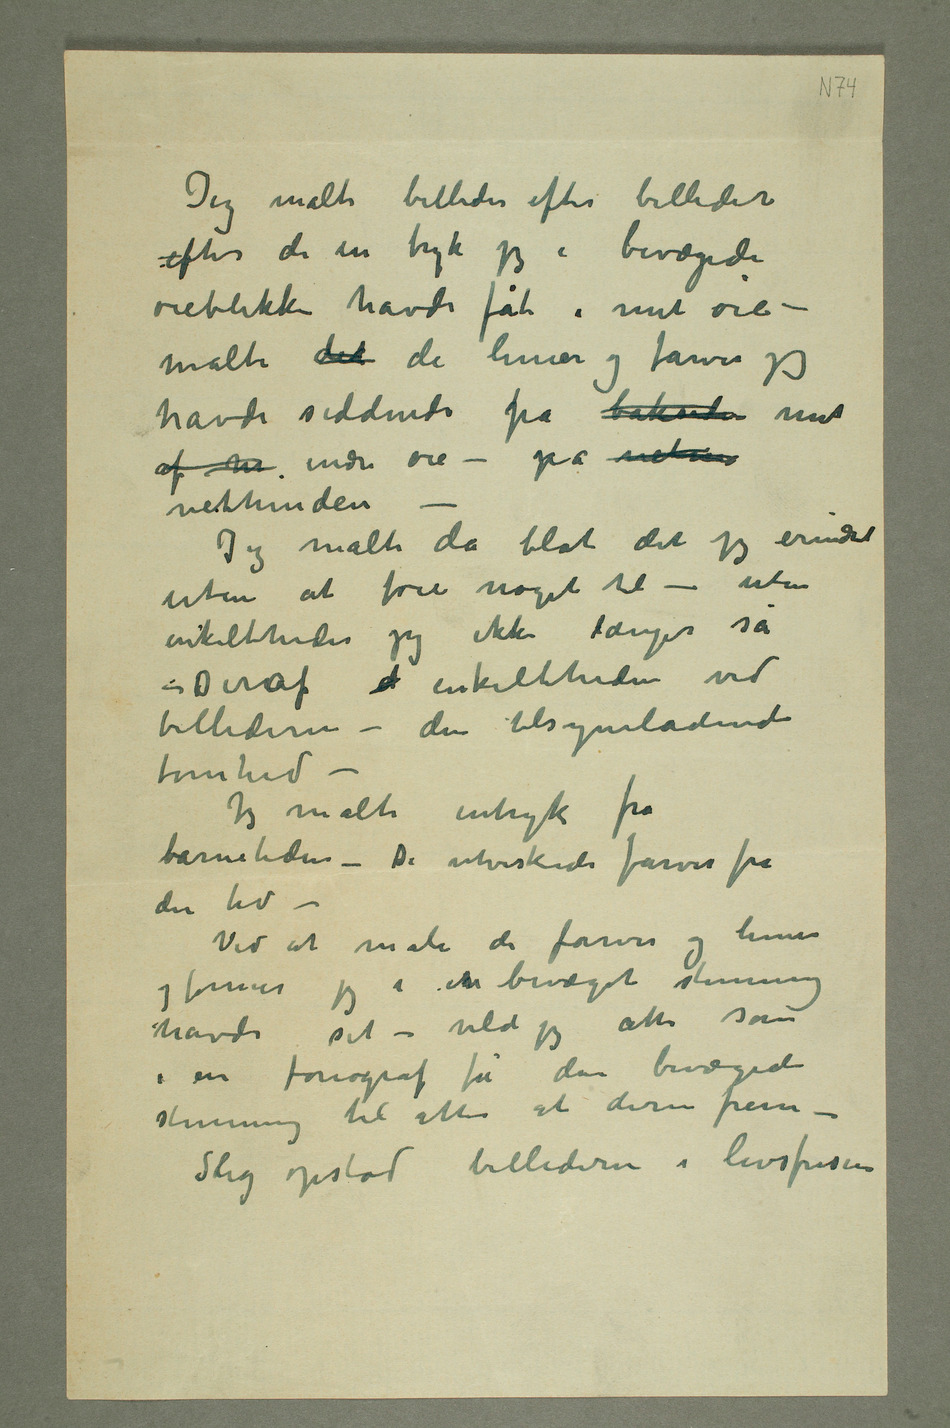 N74
Jeg malte billeder efter billeder
efter de in tryk jeg i bevægede
øieblikke havde fåt i mit øie –
malte det de linier og farver jeg
havde siddende på baksiden mit
af m indre øie – på netnin
netthinden –
Jeg malte da blot det jeg erindret
uten at føie noget til – uten
enkeltheder jeg ikke længer så
– Deraf d enkeltheden ved
billederne – den tilsyneladende
tomhed –
Jeg malte intryk fra
barnetiden – De utviskede farver fra
den tid –
Ved at male de farver og linier
og former jeg i en bevæget stemning
havde set – vilde jeg atter som
i en fonograf få den bevægede
stemning til atter at dirre frem –
Slig opstod billederne i livsfrisen